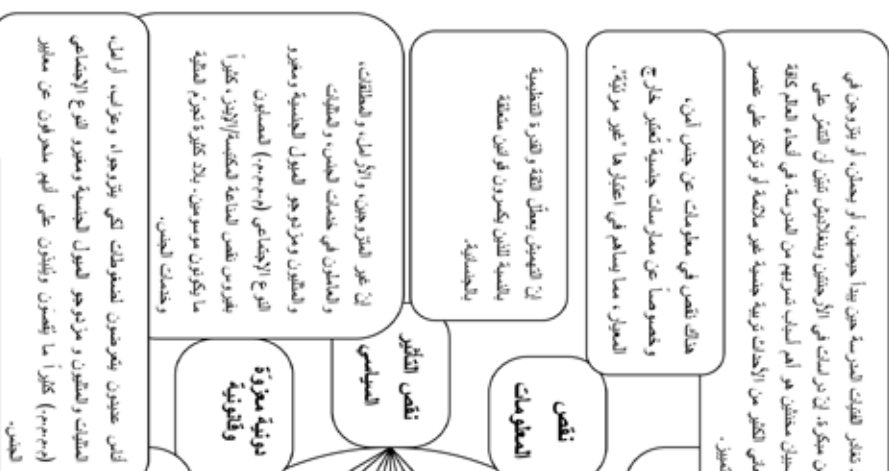 تغادر الفتيات المدرسة حين يبدأ حيضهن، أو يحملن، أو يتزوجن في
مبكرة. إنّ دراسات في الأرجنتين وبنغلاديش تبيّن أن التنمّر على
مخنثين هو أهم أسباب تسربهم من المدرسة. في أنحاء العالم كافة
الكثير من الأحداث تربية جنسية غير ملائمة أو ترتكز على عنصر
هناك نقص في معلومات عن جنس آمن،
وخصوصاً عن ممارسات جنسية تُعتبر خارج
المعيار، مما يساهم في اعتبارها "غير مرئيّة".
نقص
المعلومات
إنّ التهميش يعطّل الثقة والقدرة التنظيمية
بالنسبة للذين يكسرون قوانين متعلقة
بالجنسانية.
نقص التأثير
السياسي
إنّ غير المتزوجين، والأرامل، والمطلقات،
والعاملون في خدمات الجنس، والمثليات
والمثليون ومزدوجو الميول الجنسية ومغيرو
النوع الإجتماعي (م.م.م.م.) المصابون
بفيروس نقص المناعة المكتسبة/الإيدز، كثيراً
ما يكونون موسومين. بلاد كثيرة تجرّم المثلية
وخدمات الجنس.
دونية معزوّة
وقانونية
أناس عديدون يتعرضون لضغوطات لكي يتزوجوا، وعزاب، أرامل،
المثليات والمثليون و مزدوجو الميول الجنسية ومغيرو النوع الإجتماعي
(م.م.م.م.) كثيراً ما يُقصَون ويُنبَذون على أنهم منحرفون عن معايير
الجنس.